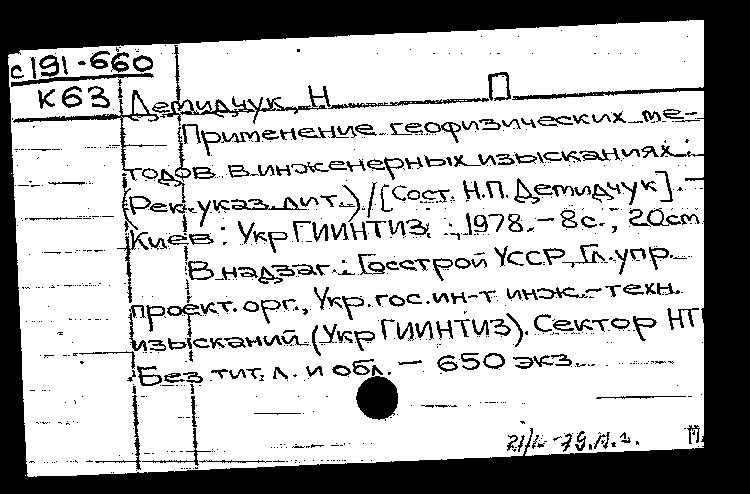 с191-660
К63 Демидчук, Н П
Применение геофизических ме-
тодов в инженерных изысканиях:
(Рек. указ. лит.) / [Сост. Н.П. Демидчук]. —
Киев: УкрГИИНТИЗ, 1978. - 8с.; 20см
В надзаг.: Госстрой УССР, Гл. упр.
проект. орг., Укр. гос. ин-т инж.-техн.
изысканий (УкрГИИНТИЗ). Сектор НТ
Без тит. л. и обл. — 650 экз.